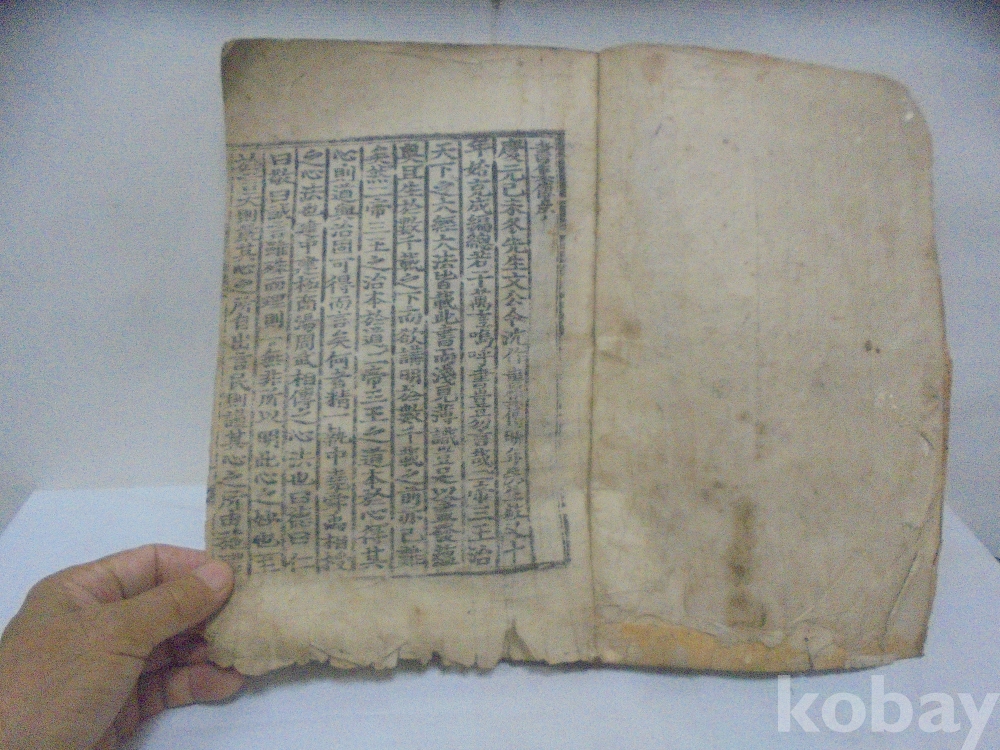 書集傳序
慶元己未冬先生文公令沈作書集傳明年先生歿又十
年始克成編總若干萬言嗚呼書豈易言哉二帝三王治
天下之大經大法皆載此書而淺見薄識豈足以盡發蘊
奧且生於數千載之下而欲講明於數千載之前亦已難
矣然二帝三王之治本於道二帝三王之道本於心得其
心則道與治固可得而言矣何者精一執中堯舜禹相授
之心法也建中建極商湯周武相傳之心法也曰德曰仁
曰敬曰誠言雖殊而理則一無非所以明此心之妙也至
於言天則嚴其心之所自出言民則謹其心之所由
kobay